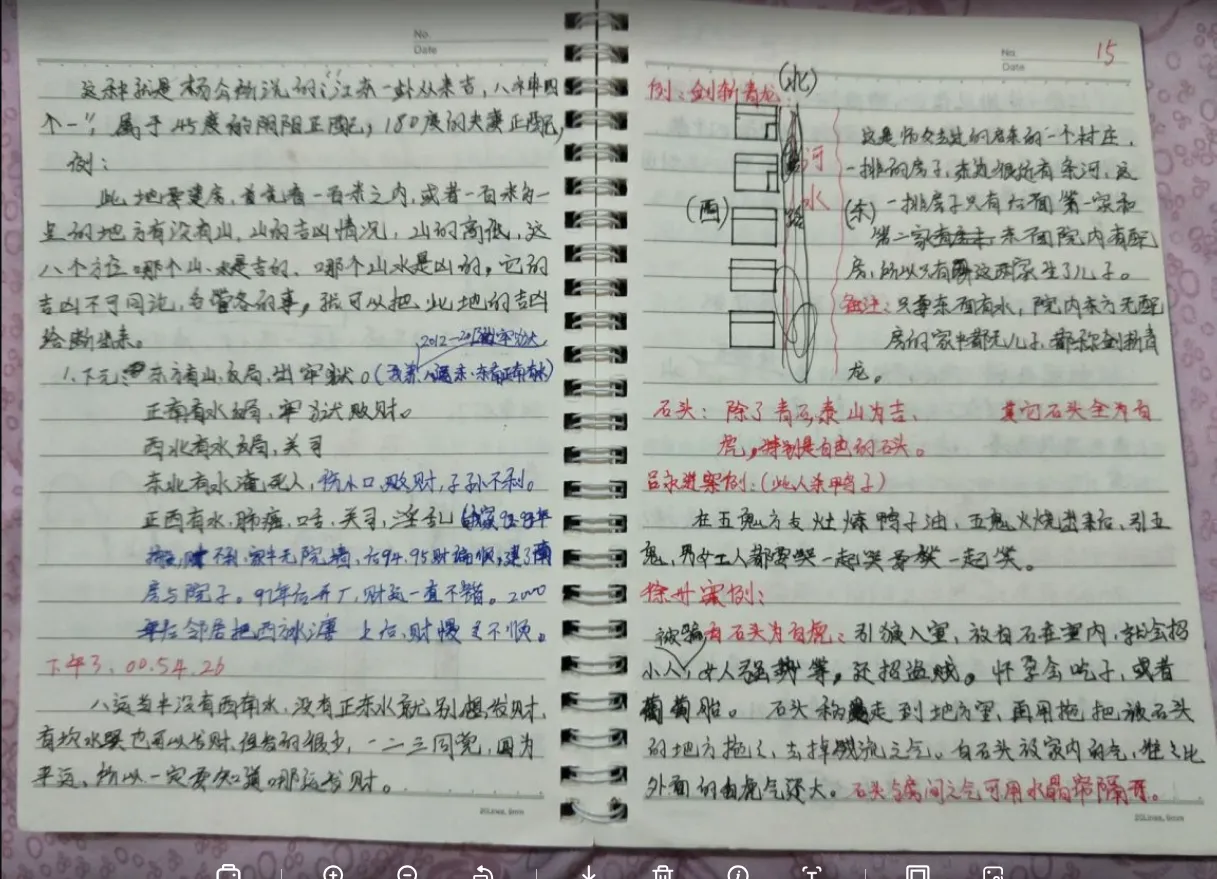 No.
Date
这种就是杨公所说的:“江东一卦从来吉,八神四
个一”,属于45度的阴阳正配,180度的夫妻正配,
例:
此地要建房,首先看一百米之内,或者一百米多一
点的地方有没有山,山的吉凶情况,山的高低,这
八个方位哪个山、水是吉的、哪个山水是凶的,它的
吉凶不可同论,各管各的事,就可以把此地的吉凶
给断出来。
2012-
1、下元: 东方有山破局,出牢狱。
正南有水破局,牢狱败财。
西北有水破局,关司
东北有水淹死人,伤小口,败财,子孙不利。
正西有水,肺痨,口舌,关司,淫乱
家中无院墙,后94、95财编顺,建了南
房与院子。97年后开厂,财运一直不错。2000
年后邻居把西方水沟 上后,财慢慢不顺。
下午3、00.54.26
八运当中没有西南水,没有正东水就别想发财,
有坎水哭也可以发财,但发的很少,一二三同党,因为
平运,所以一定要知道哪运发财。
20Lines, 6mm
No.
Date
15
例:剑斩青龙
(北)
河
水
路
(西)
(东)
这是师父去过的启东的一个村庄,
一排的房子,东边很近有条河,这
一排房子只有后面第一家和
第二家 东面院内有配
房,所以只有 这两家生了儿子。
批注:只要东面有水,院内东方无配
房的家中都无儿子,都称剑斩青
龙。
石头:除了青石、泰山为吉、 其它石头全为白
虎,特别是白色的石头。
案例:(此人杀鸭子)
在五鬼方支灶炼鸭子油,五鬼火烧出来后,引五
鬼,男女工人都要哭一起哭要笑一起笑。
徐州案例:
被骗
白石头为白虎:引狼入室,放白石在室内,就会招
小人,女人强势等,还招盗贼。怀孕会吃子,或者
葡萄胎。 石头 走到地方里,再用拖把放石头
的地方拖拖,去掉残流之气。白石头放家内的气,往往比
外面的白虎气还大。石头与房间之气可用水晶帘隔开。
20Lines, 6mm